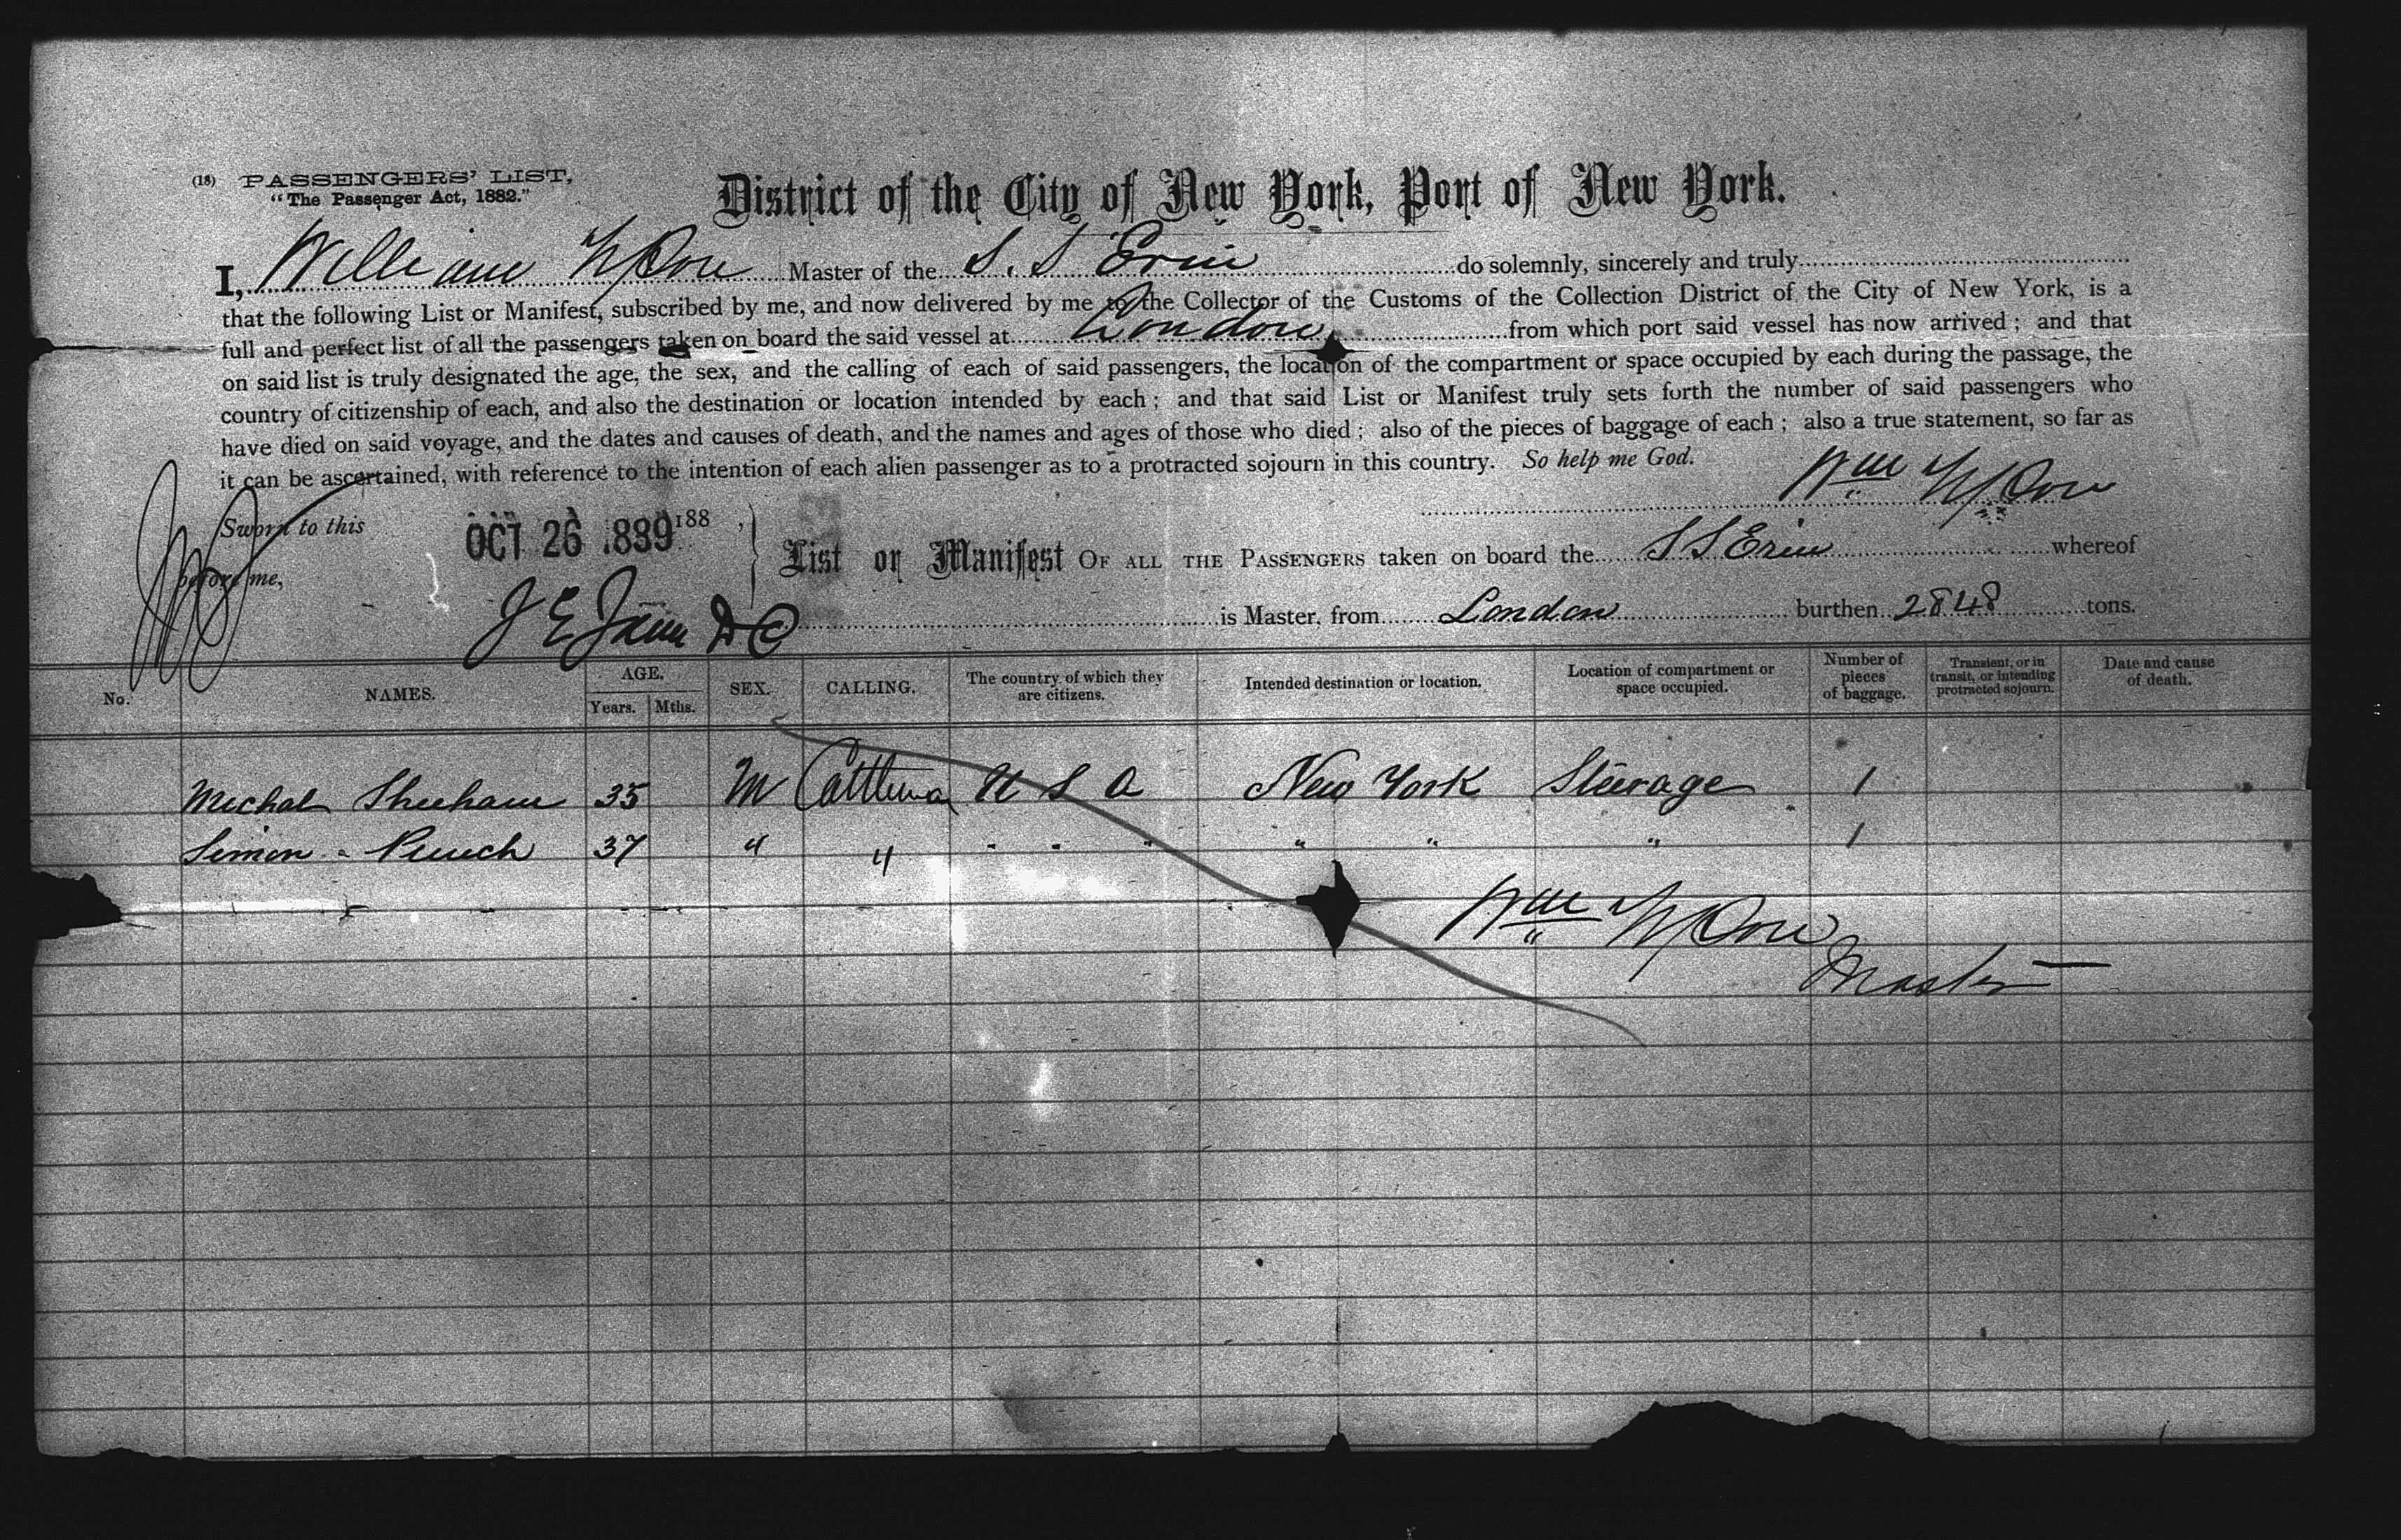 (18) PASSENGERS' LIST,
"The Passenger Act, 1882."
District of the City of New York, Port of New York.
I, William Master of the S. S Erin do solemnly, sincerely and truly
that the following List or Manifest, subscribed by me, and now delivered by me to the Collector of the Customs of the Collection District of the City of New York, is a
full and perfect list of all the passengers taken on board the said vessel at London from which port said vessel has now arrived; and that
on said list is truly designated the age, the sex, and the calling of each of said passengers, the location of the compartment or space occupied by each during the passage, the
country of citizenship of each, and also the destination or location intended by each; and that said List or Manifest truly sets forth the number of said passengers who
have died on said voyage, and the dates and causes of death, and the names and ages of those who died; also of the pieces of baggage of each; also a true statement, so far as
it can be ascertained, with reference to the intention of each alien passenger as to a protracted sojourn in this country. So help me God.
Wm
Sworn to this OCT 26 1889 188 ,
before me,
List or Manifest OF ALL THE PASSENGERS taken on board the S S Erin whereof
J E D C is Master, from London burthen 2848 tons.
No. NAMES. AGE. Years. Mths. SEX. CALLING. The country of which they are citizens. Intended destination or location. Location of compartment or space occupied. Number of pieces of baggage. Transient, or in transit, or intending protracted sojourn. Date and cause of death.
Michal Sheehan 35 M Cattleman U S A New York Steerage 1
Simon 37 " " " " " " " " 1
Wm
Master